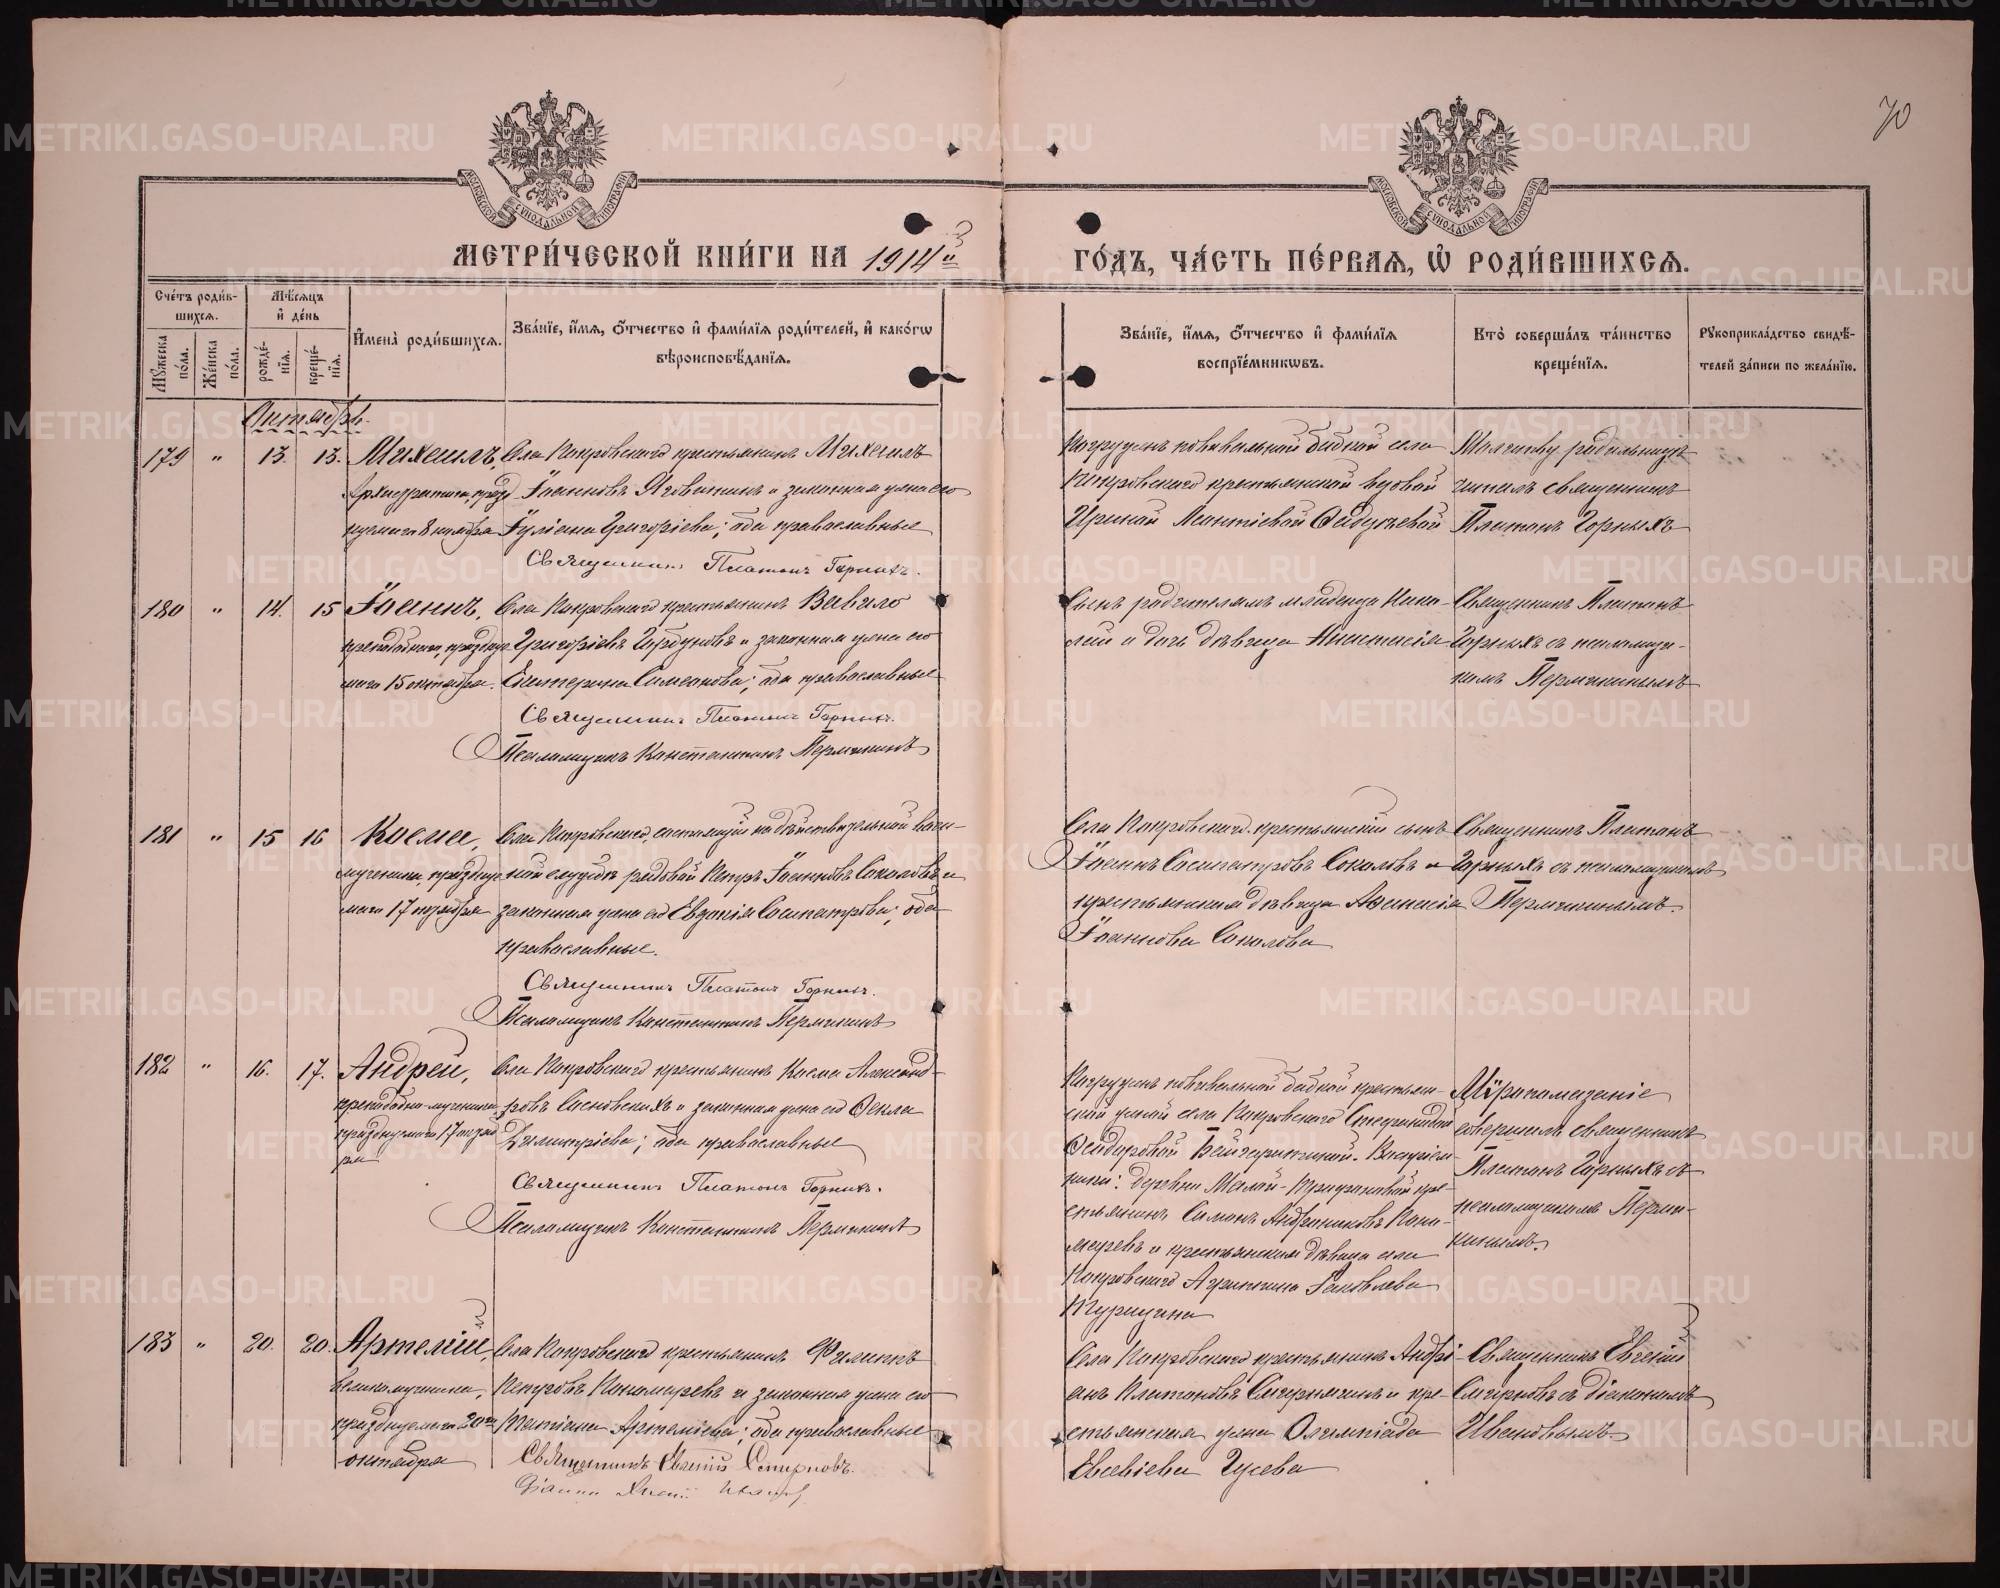 70
МЕТРИ́ЧЕСКОЙ КНИ́ГИ НА 1914й
ГО́ДЪ, ЧА́СТЬ ПЕ́РВАЯ, Ѡ РОДИ́ВШИХСЯ.
Сче́тъ роди́в-
шихся.
Мꙋ́жеска по́ла.
Же́нска по́ла.
Мѣ́сяцъ и де́нь
рожде́-
нїя.
креще́-
нїя.
Имена̀ роди́вшихся.
Зва́нїе, и́мя, ѻ́тчество и фами́лїя роди́телей, и како́гѡ
вѣроисповѣ́данїя.
Зва́нїе, и́мя, ѻ́тчество и фами́лїя
воспрїе́мникѡвъ.
Кто̀ соверша́лъ та́инство
креще́нїя.
Рꙋкоприкла́дство свидѣ́-
телей за́писи по жела́нїю.
Октябрь.
179 " 13. 13. Михаилъ,
Архистратига, празд
нуемаго 8 ноября
Села Покровскаго крестьянинъ Михаилъ
Іоанновъ Яговитинъ и законная жена его
Іуліана Григоріева; оба православные
Священникъ Платонъ Горныхъ.
Погруженъ повивальной бабкой села
Покровскаго крестьянской вдовой
Ириной Леонтіевой
Молитву родильницѣ
читалъ священникъ
Платонъ Горныхъ
180 " 14. 15 Іоаннъ,
преподобнаго, праздну
емаго 15 октября.
Села Покровскаго крестьянинъ Вавило
Григоріевъ Горбуновъ и законная жена его
Екатерина Симеонова; оба православные
Священникъ Платонъ Горныхъ.
Псаломщикъ Константинъ Пермикинъ
Сынъ родителямъ младенца Нико-
лай и дочь дѣвица Анастасія
Священникъ Платонъ
Горныхъ съ псаломщи-
комъ Пермикинымъ
181 " 15 16 Косма,
мученика, праздну
емаго 17 октября
Села Покровскаго, состоящій на дѣйствительной воен-
ной службѣ рядовой Петръ Іоанновъ Соколовъ и
законная жена его Евдокія Сосипатрова; оба
православные.
Священникъ Платонъ Горныхъ.
Псаломщикъ Константинъ Пермикинъ
Села Покровскаго крестьянскій сынъ
Іоаннъ Сосипатровъ Соколовъ и
крестьянская дѣвица Афанасія
Іоаннова Соколова
Священникъ Платонъ
Горныхъ съ псаломщикомъ
Пермикинымъ.
182 " 16. 17. Андрей,
преподобно-мученика,
празднуемаго 17 октяб
ря
Села Покровскаго крестьянинъ Косма Александ-
ровъ Сосновскихъ и законная жена его Ѳекла
Димитріева; оба православные
Священникъ Платонъ Горныхъ.
Псаломщикъ Константинъ Пермикинъ
Погруженъ повивальной бабкой крестьян-
ской женой села Покровскаго Стефанидой
Ѳеодоровой Воспріем-
ники: деревни Малой-Трифоновой кре-
стьянинъ Симонъ Андрониковъ Поно-
маревъ и крестьянская дѣвица села
Покровскаго Агриппина Іаковлева
Турицина
Мѵропомазаніе
совершалъ священникъ
Платонъ Горныхъ съ
псаломщикомъ Перми-
кинымъ.
183 " 20. 20. Артемій,
великомученика,
празднуемаго 20го
октября
Села Покровскаго крестьянинъ Филиппъ
Петровъ Пономаревъ и законная жена его
Татіана Артеміева; оба православные
Священникъ Евгеній Смирновъ.
Діаконъ Ивановъ
Села Покровскаго крестьянинъ Андрі-
анъ Платоновъ и кре-
стьянская жена Олимпіада
Евсевіева Гусева
Священникъ Евгеній
Смирновъ съ діакономъ
Ивановымъ.
METRIKI.GASO-URAL.RU